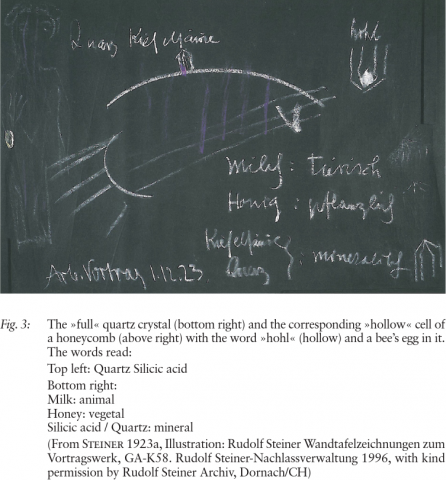 Quarz Kieselsäure
hohl
Milch : tierisch
Honig : pflanzlich
Kieselsäure
Quarz : mineralisch
Arb. Vortrag 1.12.23.
Fig. 3: The »full« quartz crystal (bottom right) and the corresponding »hollow« cell of
a honeycomb (above right) with the word »hohl« (hollow) and a bee's egg in it.
The words read:
Top left: Quartz Silicic acid
Bottom right:
Milk: animal
Honey: vegetal
Silicic acid / Quartz: mineral
(From STEINER 1923a, Illustration: Rudolf Steiner Wandtafelzeichnungen zum
Vortragswerk, GA-K58. Rudolf Steiner-Nachlassverwaltung 1996, with kind
permission by Rudolf Steiner Archiv, Dornach/CH)